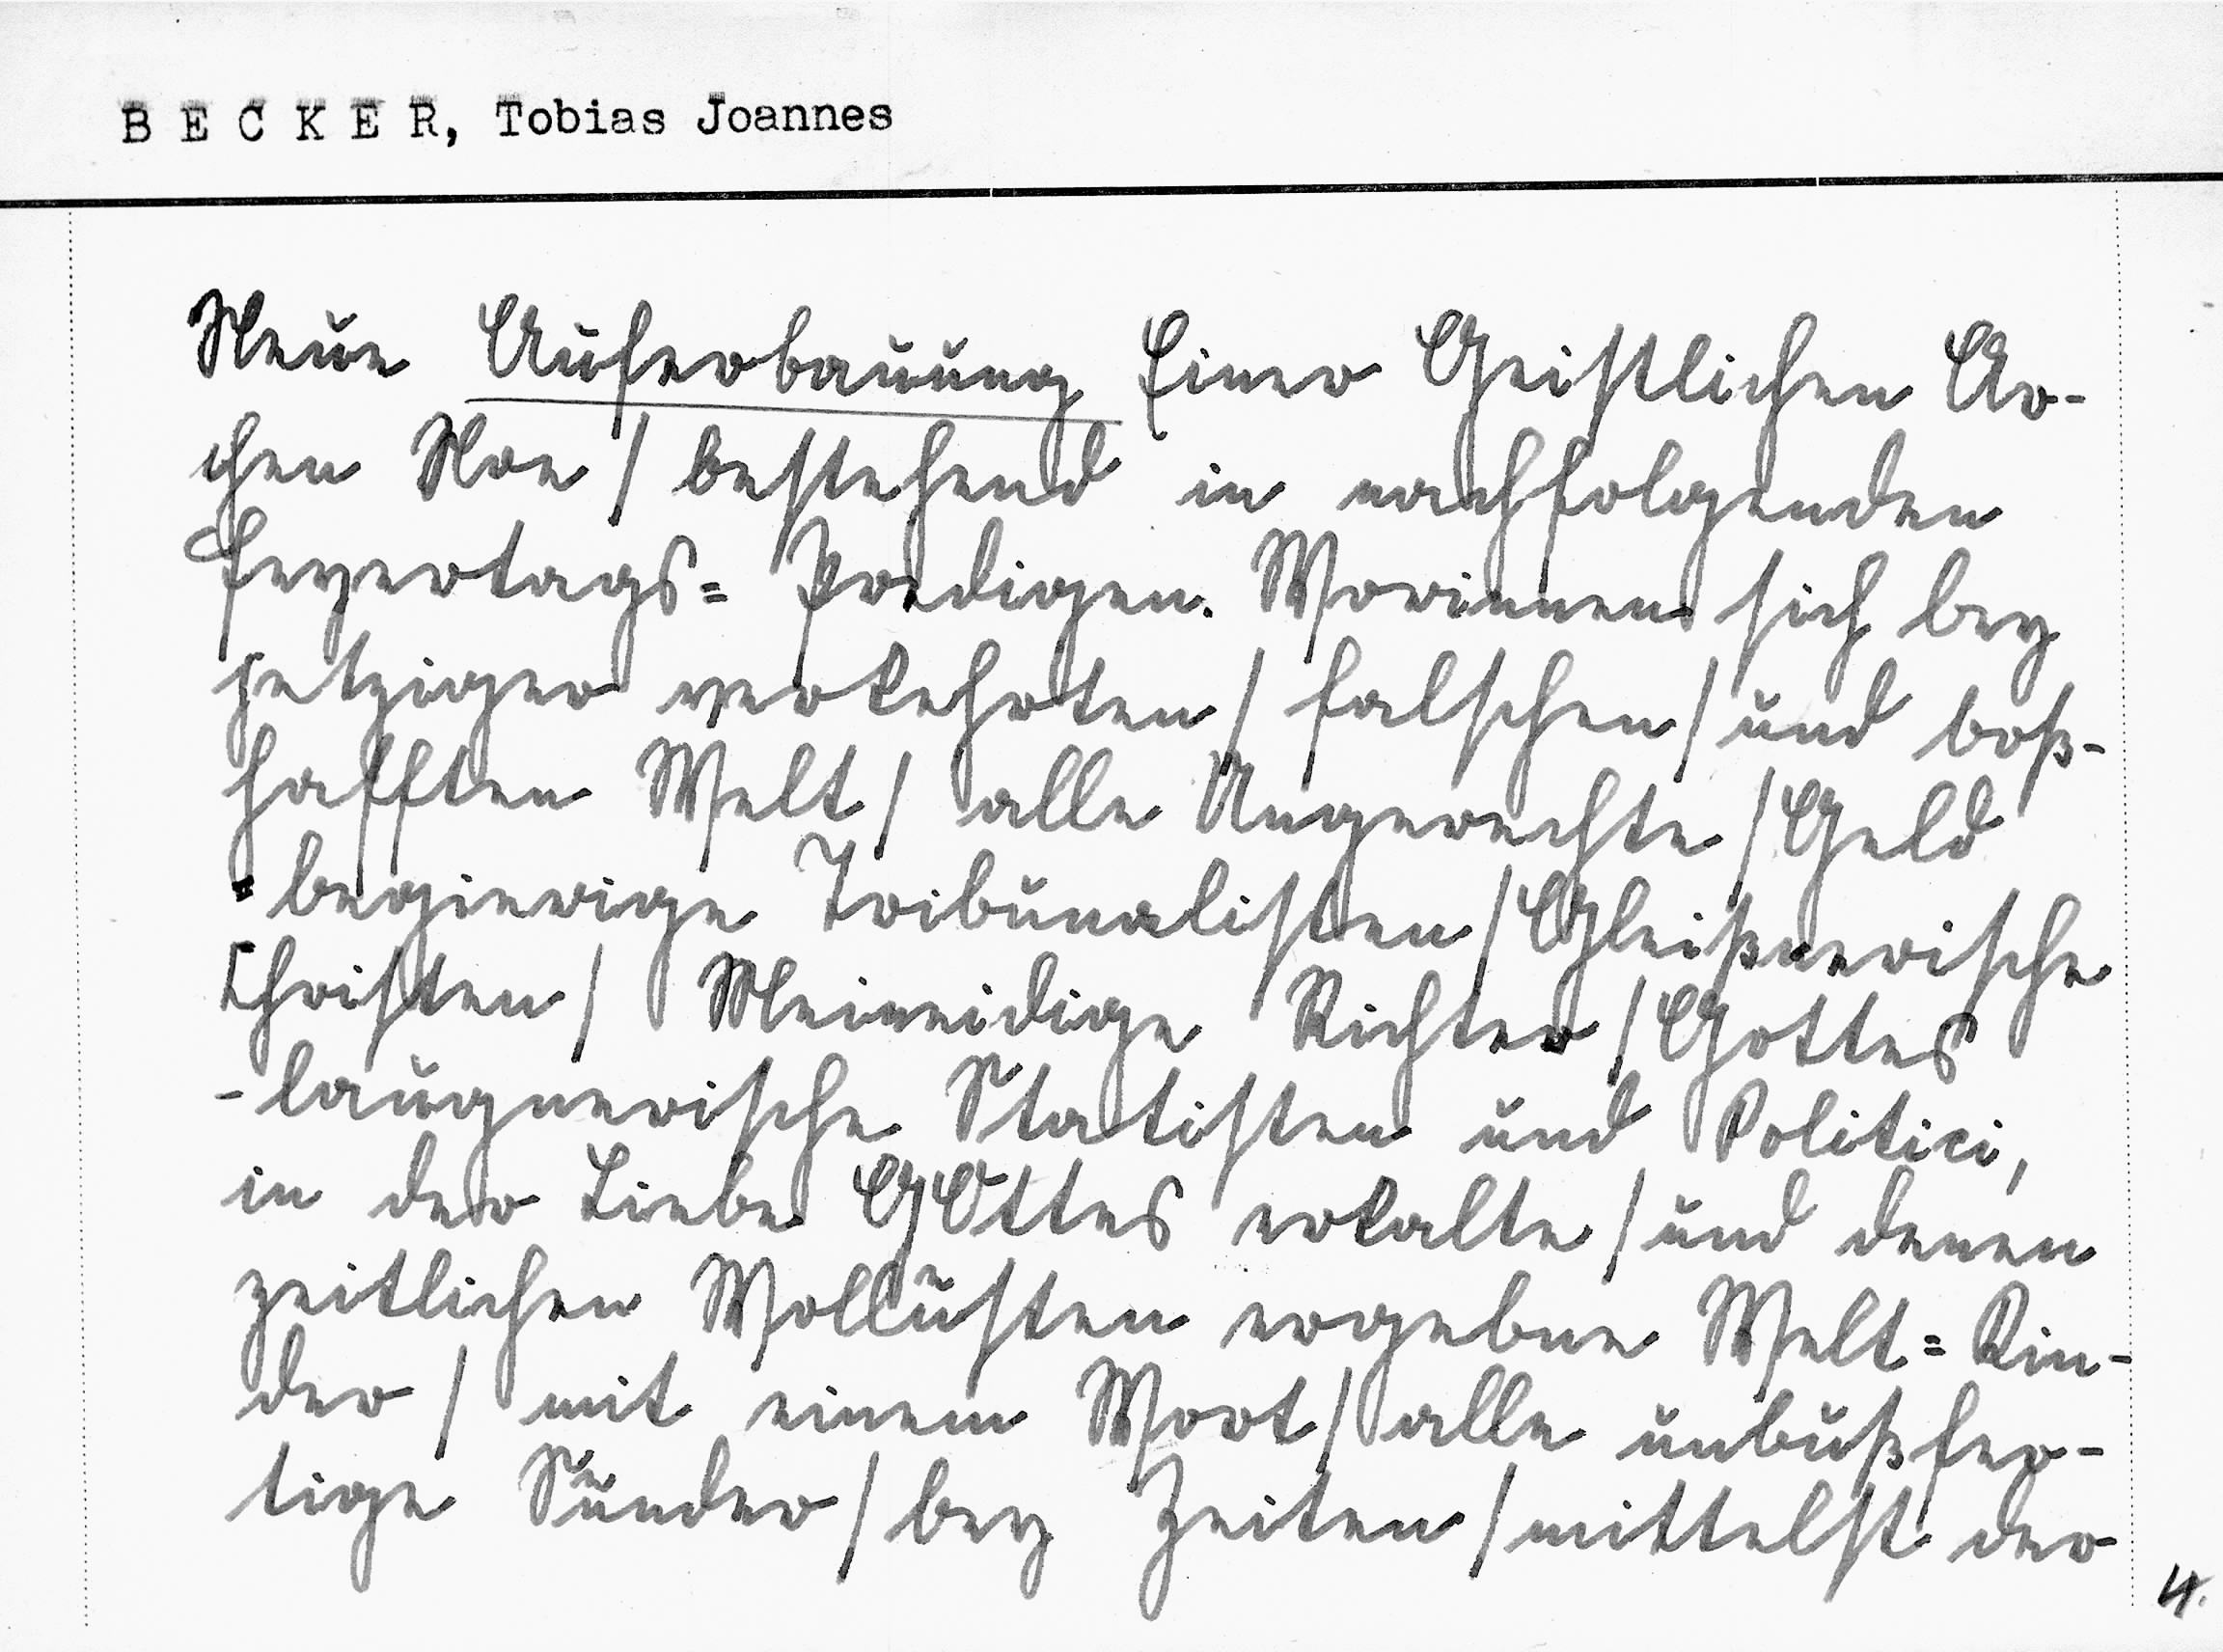 BECKER, Tobias Joannes
Neue Auferbauung Einer Geistlichen Ar-
chen Noe / bestehend in nachfolgenden
Feyertags= Predigen. Worinnen sich bey
jetziger verkehrten / falschen / und boß-
hafften Welt / alle Ungerechte / Geld
=begierige Tribunalisten / Gleißnerische
Christen / Meineidige Richter / Gottes
-laugnerische Statisten und Politici,
in der Liebe GOttes erkalte / und denen
zeitlichen Wollüsten ergebne Welt= Kin-
der / mit einem Wort / alle unbußfer-
tige Sünder / bey Zeiten / mittelst der